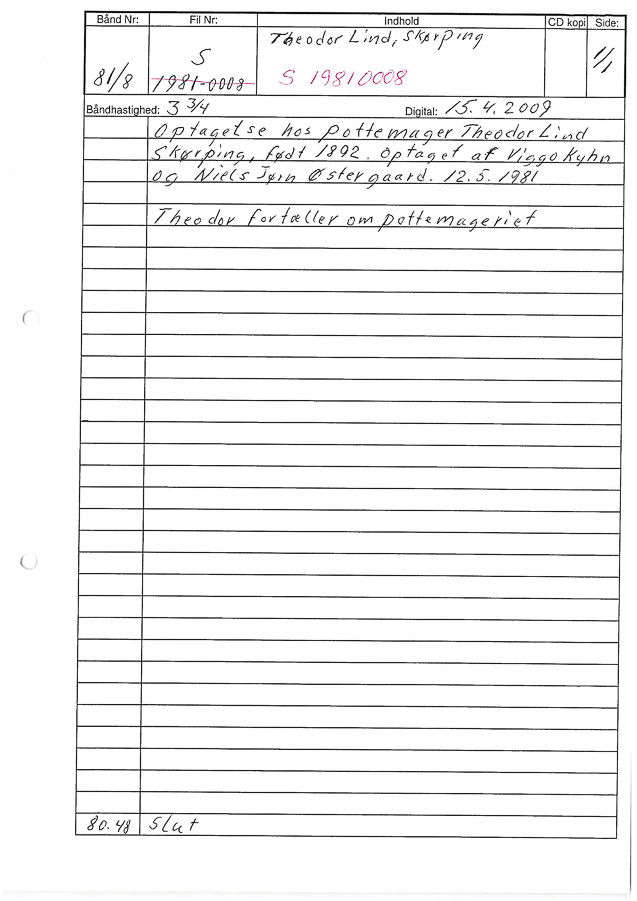 Bånd Nr: Fil Nr: Indhold CD kopi Side:
Theodor Lind, Skørping
S
81/8 1981-0008 S 19810008 1/1
Båndhastighed: 3 3/4 Digital: 15.4.2009
Optagelse hos pottemager Theodor Lind
Skørping, født 1892. Optaget af Viggo Kyhn
og Niels Jørn Østergaard. 12.5.1981
Theodor fortæller om pottemageriet
80.48 Slut